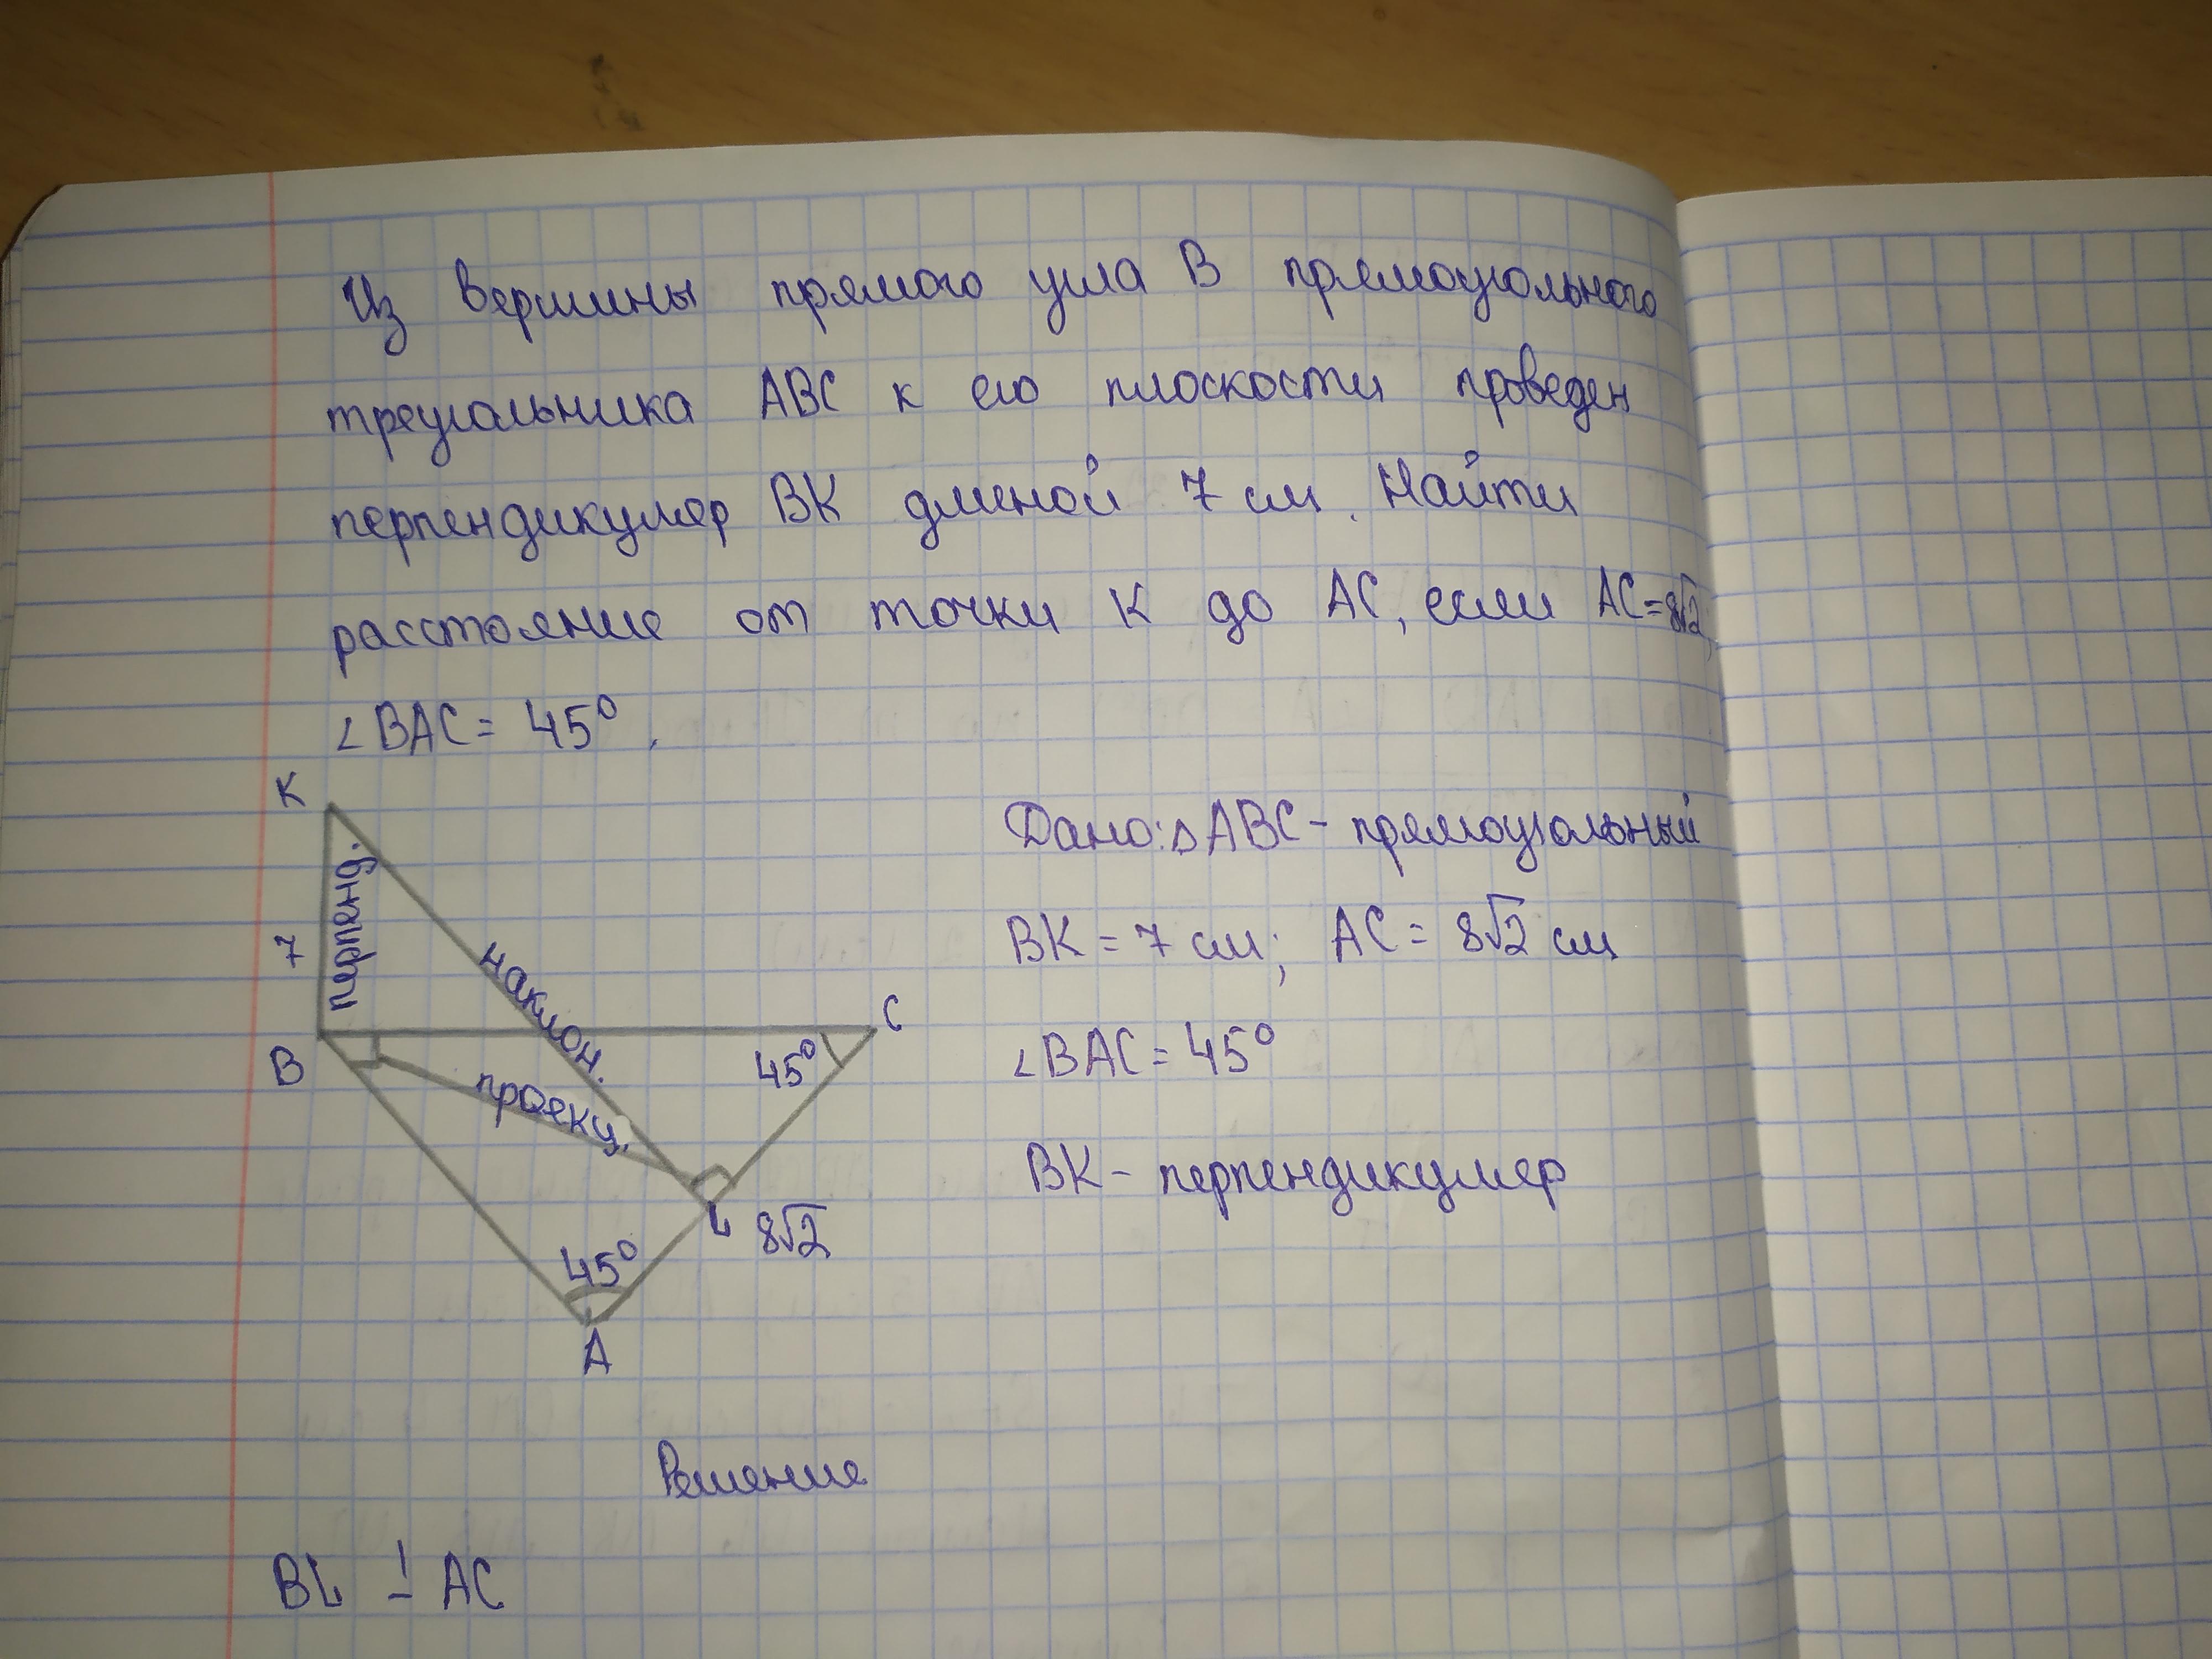 Из вершины прямого угла В прямоугольного
треугольника АВС к его плоскости проведен
перпендикуляр ВК длиной 7 см. Найти
расстояние от точки К до АС, если АС=8√2,
∠ВАС= 45°.
К
перпенд.
7
наклон.
В
С
45°
проекц.
L
8√2
45°
А
Дано: △АВС - прямоугольный
ВК = 7 см; АС = 8√2 см
∠ВАС= 45°
ВК - перпендикуляр
Решение
BL ⊥ АС